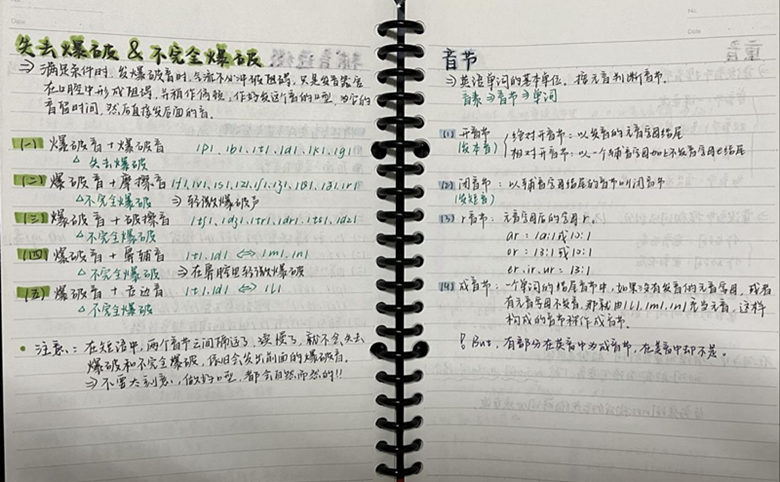 失去爆破 & 不完全爆破
⇒ 满足条件时,发爆破音时,气流不必冲破阻碍,只是发音器官
在口腔中形成阻碍,并稍作停顿,作好发这个音的口型,为它的
音留时间,然后直接发后面的音。
(一) 爆破音 + 爆破音 /p/ /b/ /t/ /d/ /k/ /g/
△ 失去爆破
(二) 爆破音 + 摩擦音 /f/ /v/ /s/ /z/ /ʃ/ /ʒ/ /θ/ /ð/ /r/
△ 不完全爆破 ⇒ 轻微爆破声
(三) 爆破音 + 破擦音 /tʃ/ /dʒ/ /tr/ /dr/ /ts/ /dz/
△ 不完全爆破
(四) 爆破音 + 鼻辅音 /t/ /d/ ⇔ /m/ /n/
△ 不完全爆破 ⇒ 在鼻腔里轻微爆破
(五) 爆破音 + 舌边音 /t/ /d/ ⇔ /l/
△ 不完全爆破
• 注意:在短语中,两个音节之间隔远了,读慢了,就不会失去
爆破和不完全爆破,依旧会发出前面的爆破音。
⇒ 不要太刻意,做好口型,都会自然而然的!!
音节
⇒ 英语单词的基本单位,按元音判断音节。
音素⇒音节⇒单词
(1) 开音节 绝对开音节:以发音的元音字母结尾
(发本音) 相对开音节:以一个辅音字母加上不发音字母e结尾
(2) 闭音节:以辅音字母结尾的音节叫闭音节
(发短音)
(3) r音节:元音字母后的字母r。
ar = /a:/或/ɔ:/
or = /ɜ:/或/ɔ:/
er.ir.ur = /ɜ:/
(4) 成音节:一个单词的结尾音节中,如果没有发音的元音字母,或者
有元音字母不发音,那就由/l/,/m/,/n/充当元音,这样
构成的音节称作成音节。
! But,有部分在英音中为成音节,在美音中却不是。